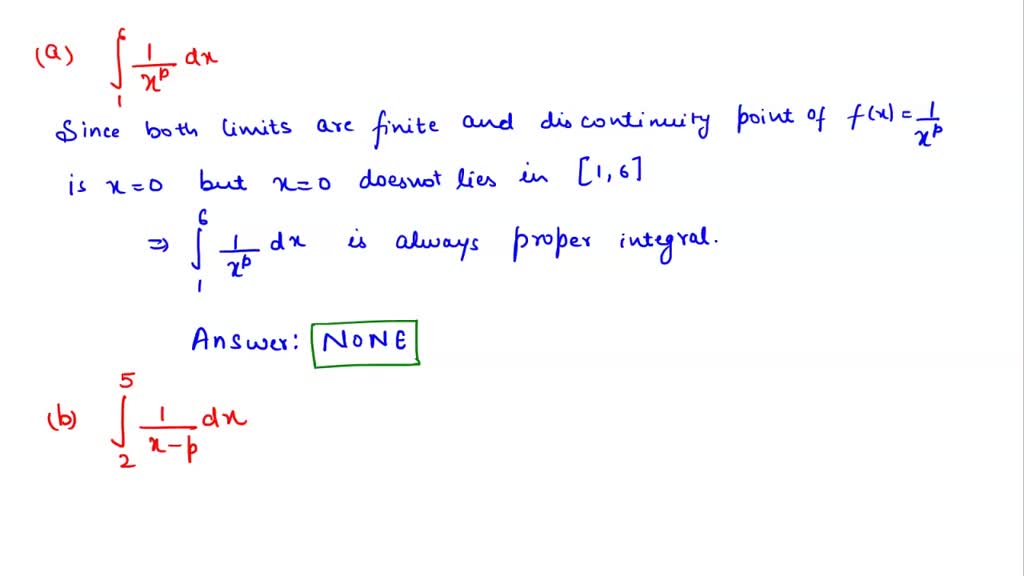 (a) ∫₁⁶ 1/xᵖ dx
Since both limits are finite and discontinuity point of f(x) = 1/xᵖ
is x=0 but x=0 doesnot lies in [1,6]
⇒ ∫₁⁶ 1/xᵖ dx is always proper integral.
Answer: NONE
(b) ∫₂⁵ 1/(x-p) dx